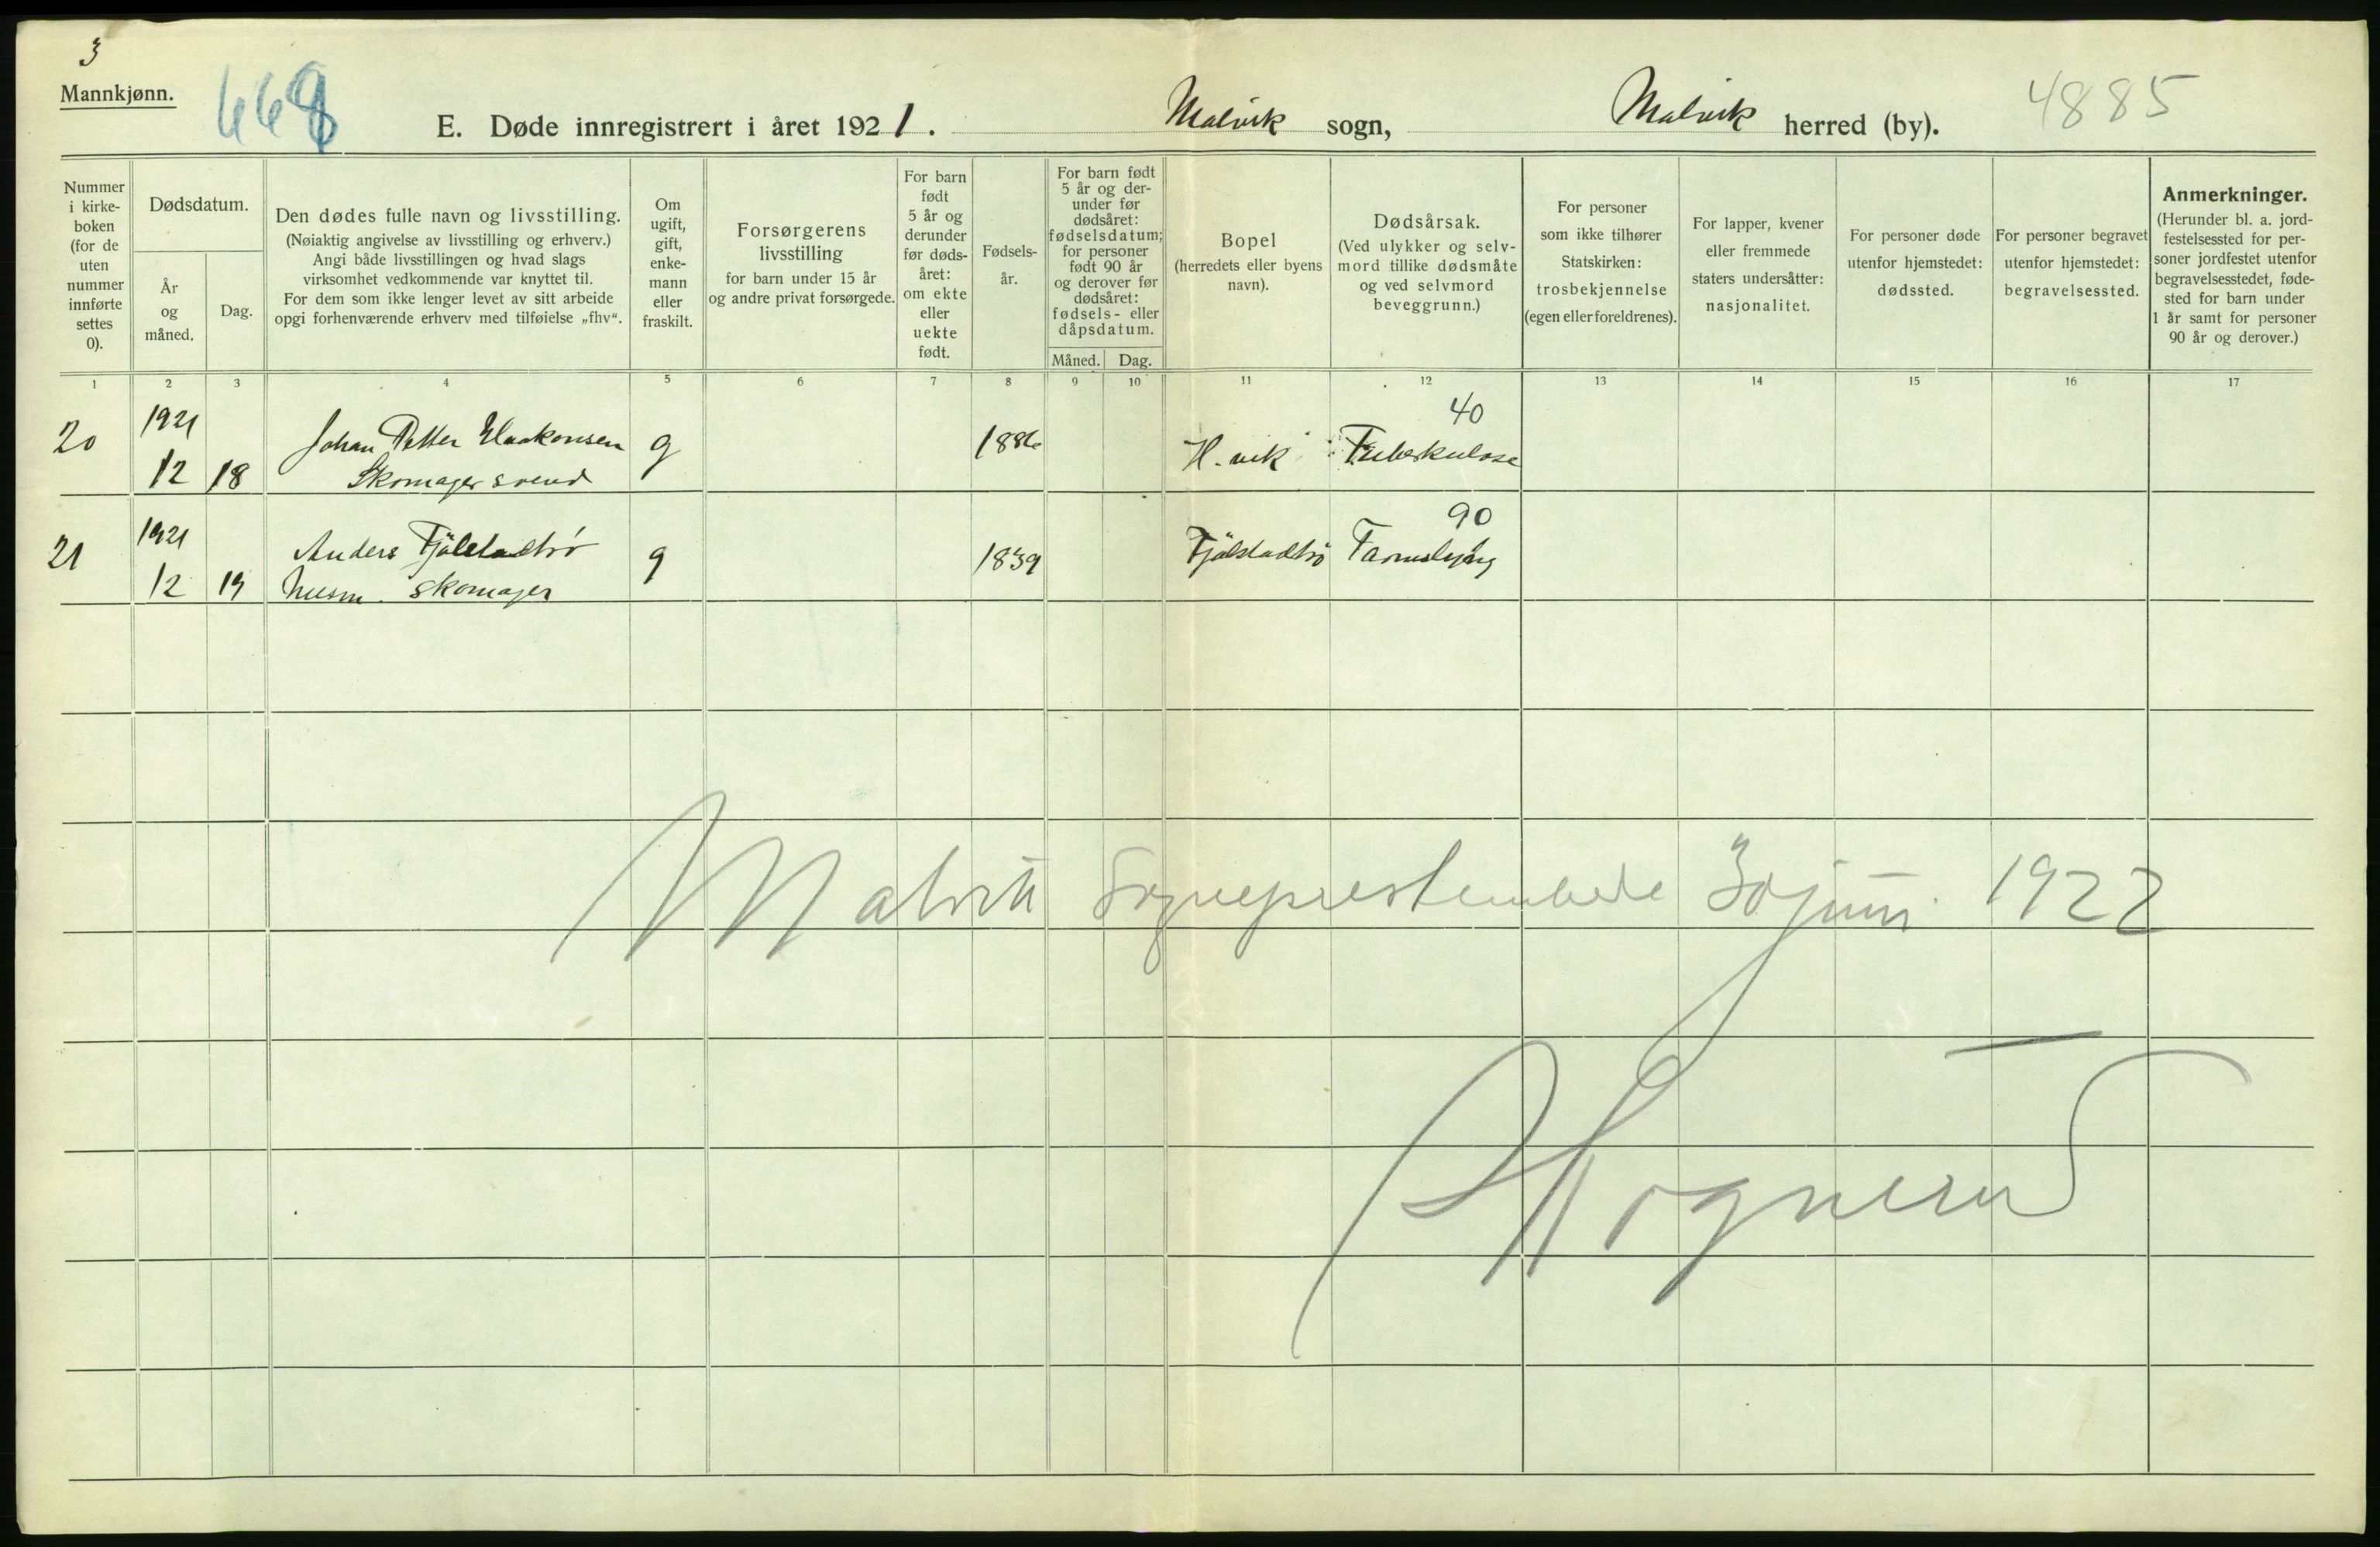 3
Mannkjønn.
668
E. Døde innregistrert i året 1921.
Malvik sogn,
Malvik herred (by).
4885
Nummer
i kirke-
boken
(for de
uten
nummer
innførte
settes
0).
Dødsdatum.
År
og
måned.
Dag.
Den dødes fulle navn og livsstilling.
(Nøiaktig angivelse av livsstilling og erhverv.)
Angi både livsstillingen og hvad slags
virksomhet vedkommende var knyttet til.
For dem som ikke lenger levet av sitt arbeide
opgi forhenværende erhverv med tilføielse „fhv“.
Om
ugift,
gift,
enke-
mann
eller
fraskilt.
Forsørgerens
livsstilling
for barn under 15 år
og andre privat forsørgede.
For barn
født
5 år og
derunder
før døds-
året:
om ekte
eller
uekte
født.
Fødsels-
år.
For barn født
5 år og der-
under før
dødsåret:
fødselsdatum;
for personer
født 90 år
og derover før
dødsåret:
fødsels- eller
dåpsdatum.
Måned. Dag.
Bopel
(herredets eller byens
navn).
Dødsårsak.
(Ved ulykker og selv-
mord tillike dødsmåte
og ved selvmord
beveggrunn.)
For personer
som ikke tilhører
Statskirken:
trosbekjennelse
(egen eller foreldrenes).
For lapper, kvener
eller fremmede
staters undersåtter:
nasjonalitet.
For personer døde
utenfor hjemstedet:
dødssted.
For personer begravet
utenfor hjemstedet:
begravelsessted.
Anmerkninger.
(Herunder bl. a. jord-
festelsessted for per-
soner jordfestet utenfor
begravelsesstedet, føde-
sted for barn under
1 år samt for personer
90 år og derover.)
1 2 3 4 5 6 7 8 9 10 11 12 13 14 15 16 17
20 1921 12 18
Johan Petter Haakonsen
Skomagersvend
g 1886 H.vik
40
Tuberkulose
21 1921 12
Anders Fjölstadtrø
husm. skomager
g 1839 Fjölstadtrø
90
Malvik Sogneprestembede 30 juni 1922